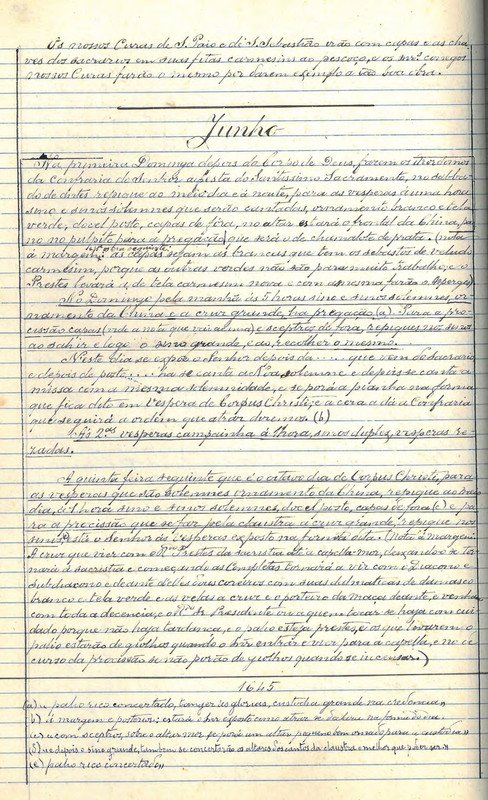 Os nossos Curas de S. Paio e de S. Sebastião irão com capas e as cha-
ves dos sacrarios em suas fitas carmesins ao pescoço, e os conegos
nossos Curas farão o mesmo por darem exemplo a tão boa obra.
Junho
Na primeira Dominga depois da Corpo de Deus, fazem os mordomos
da Confraria do Senhor a festa do Santissimo Sacramento, no sabba-
do de antes repique ao meio dia e á noute, para as vesperas á uma hora
sino e sinos solemnes que serão cantadas, ornamento branco e tela
verde, docel posto, capas de fóra, no altar estará o frontal da China, pa-
no no pulpito para a pregação que será o de chamalote de prata. (nota
á margem: as capas sejam as brancas que tem os sebastos de veludo
carmesim, porque as outras verdes não são para muito trabalho; e o
Prestes levará a de tela carmesim nova e com a mesma fará o Asperges)
No Domingo pela manhã ás 5 horas sino e sinos solemnes, or-
namento da China e a cruz grande, ha pregação (a). Para a pro-
cissão capas e sceptros de fóra, repiques nos sinos
ao sahir e logo o sino grande, e ao recolher o mesmo.
Neste dia se expõe o Senhor depois da ..... que vem do Sacrario
e depois de posto .... se canta a Noa, solemne e depois se canta a
missa com a mesma solemnidade, e se porá a peanha na forma
que fica dito em Vespera de Corpus Christi, e a cera a dá a Confraria
que seguirá a ordem que atraz diremos. (b)
Ás 2.as vesperas campainha á 1 hora, sinos duplex, vesperas re-
zadas.
A quinta feira seguinte que é o oitavo dia de Corpus Christi, para
as vesperas que são solemnes ornamento da China, repique ao meio
dia, á 1 hora sino e sinos solemnes, docel posto, capas de fóra (c) e pa-
ra a procissão que se faz pela claustra a cruz grande, repique nos
sinos, está o Senhor ás Vesperas exposto na forma dita. (Nota á margem:
A cruz que vier com o Prestes da sacristia até a capella-mor, deixando-o se tor-
nará á sacristia e começando as Completas tornará a vir com o Diacono e
Subdiacono e deante delles dous coreiros com suas dalmaticas de damasco
branco e tela verde e as velas a cruz e o porteiro da maça deante, e venha
com toda a decencia, e o Presidente ou a quem tocar se haja com cui-
dado porque não haja tardança, e o palio esteja prestes, e os que levarem o
palio estarão de giolhos quando o Snr entrar e vier para a capella, e no de-
curso da procissão se não porão de giolhos quando se incensar.)
1645
(a) o palio rico concertado, tanger ás glorias, custodia grande na credencia
(b) á margem e posterior: estará o Snr exposto como atraz se
(c) e com sceptros, sobre o altar mor se porá um altar pequeno ornado para a custodia
(d) e depois o sino grande, tambem se concertarão os altares dos cantos da claustra o melhor que poder ser
(e) palio rico concertado